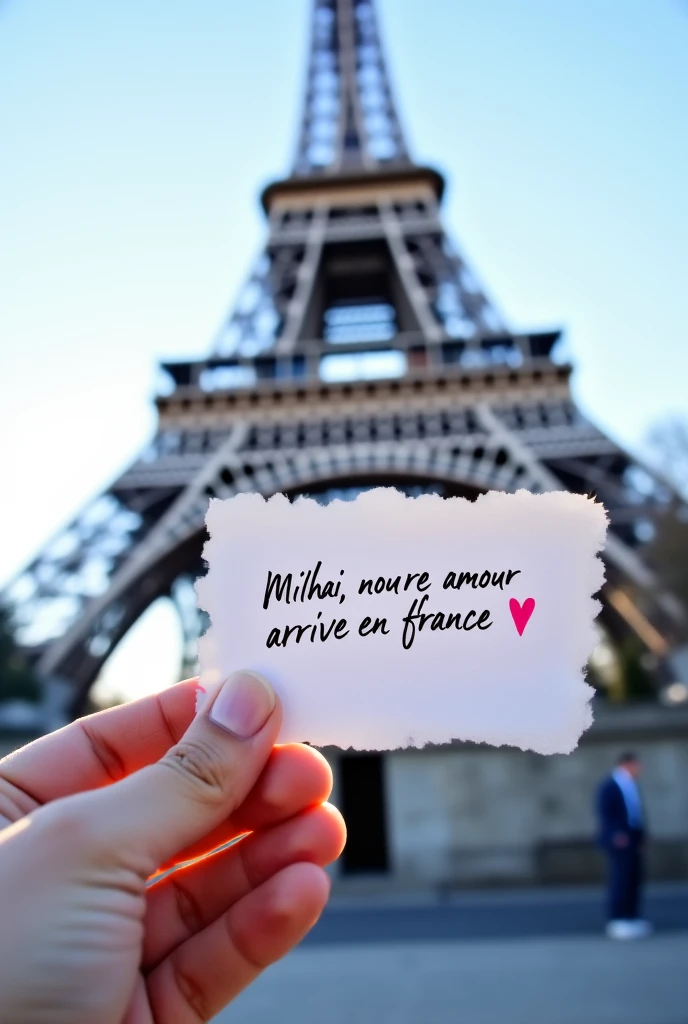 Milhai, noure amour
arrive en france